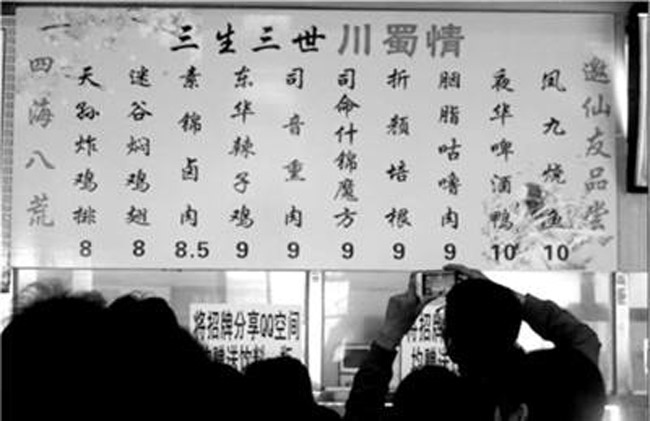 三生三世川蜀情
四海八荒
天孙炸鸡排 8
迷谷焖鸡翅 8
素锦卤肉 8.5
东华辣子鸡 9
司音重肉 9
司命什锦魔方 9
折颜培根 9
胭脂咕噜肉 9
夜华啤酒鸭 10
凤九烧鱼 10
邀仙友品尝
将招牌分享QQ空间
均赠送饮料一瓶
将招牌
均赠